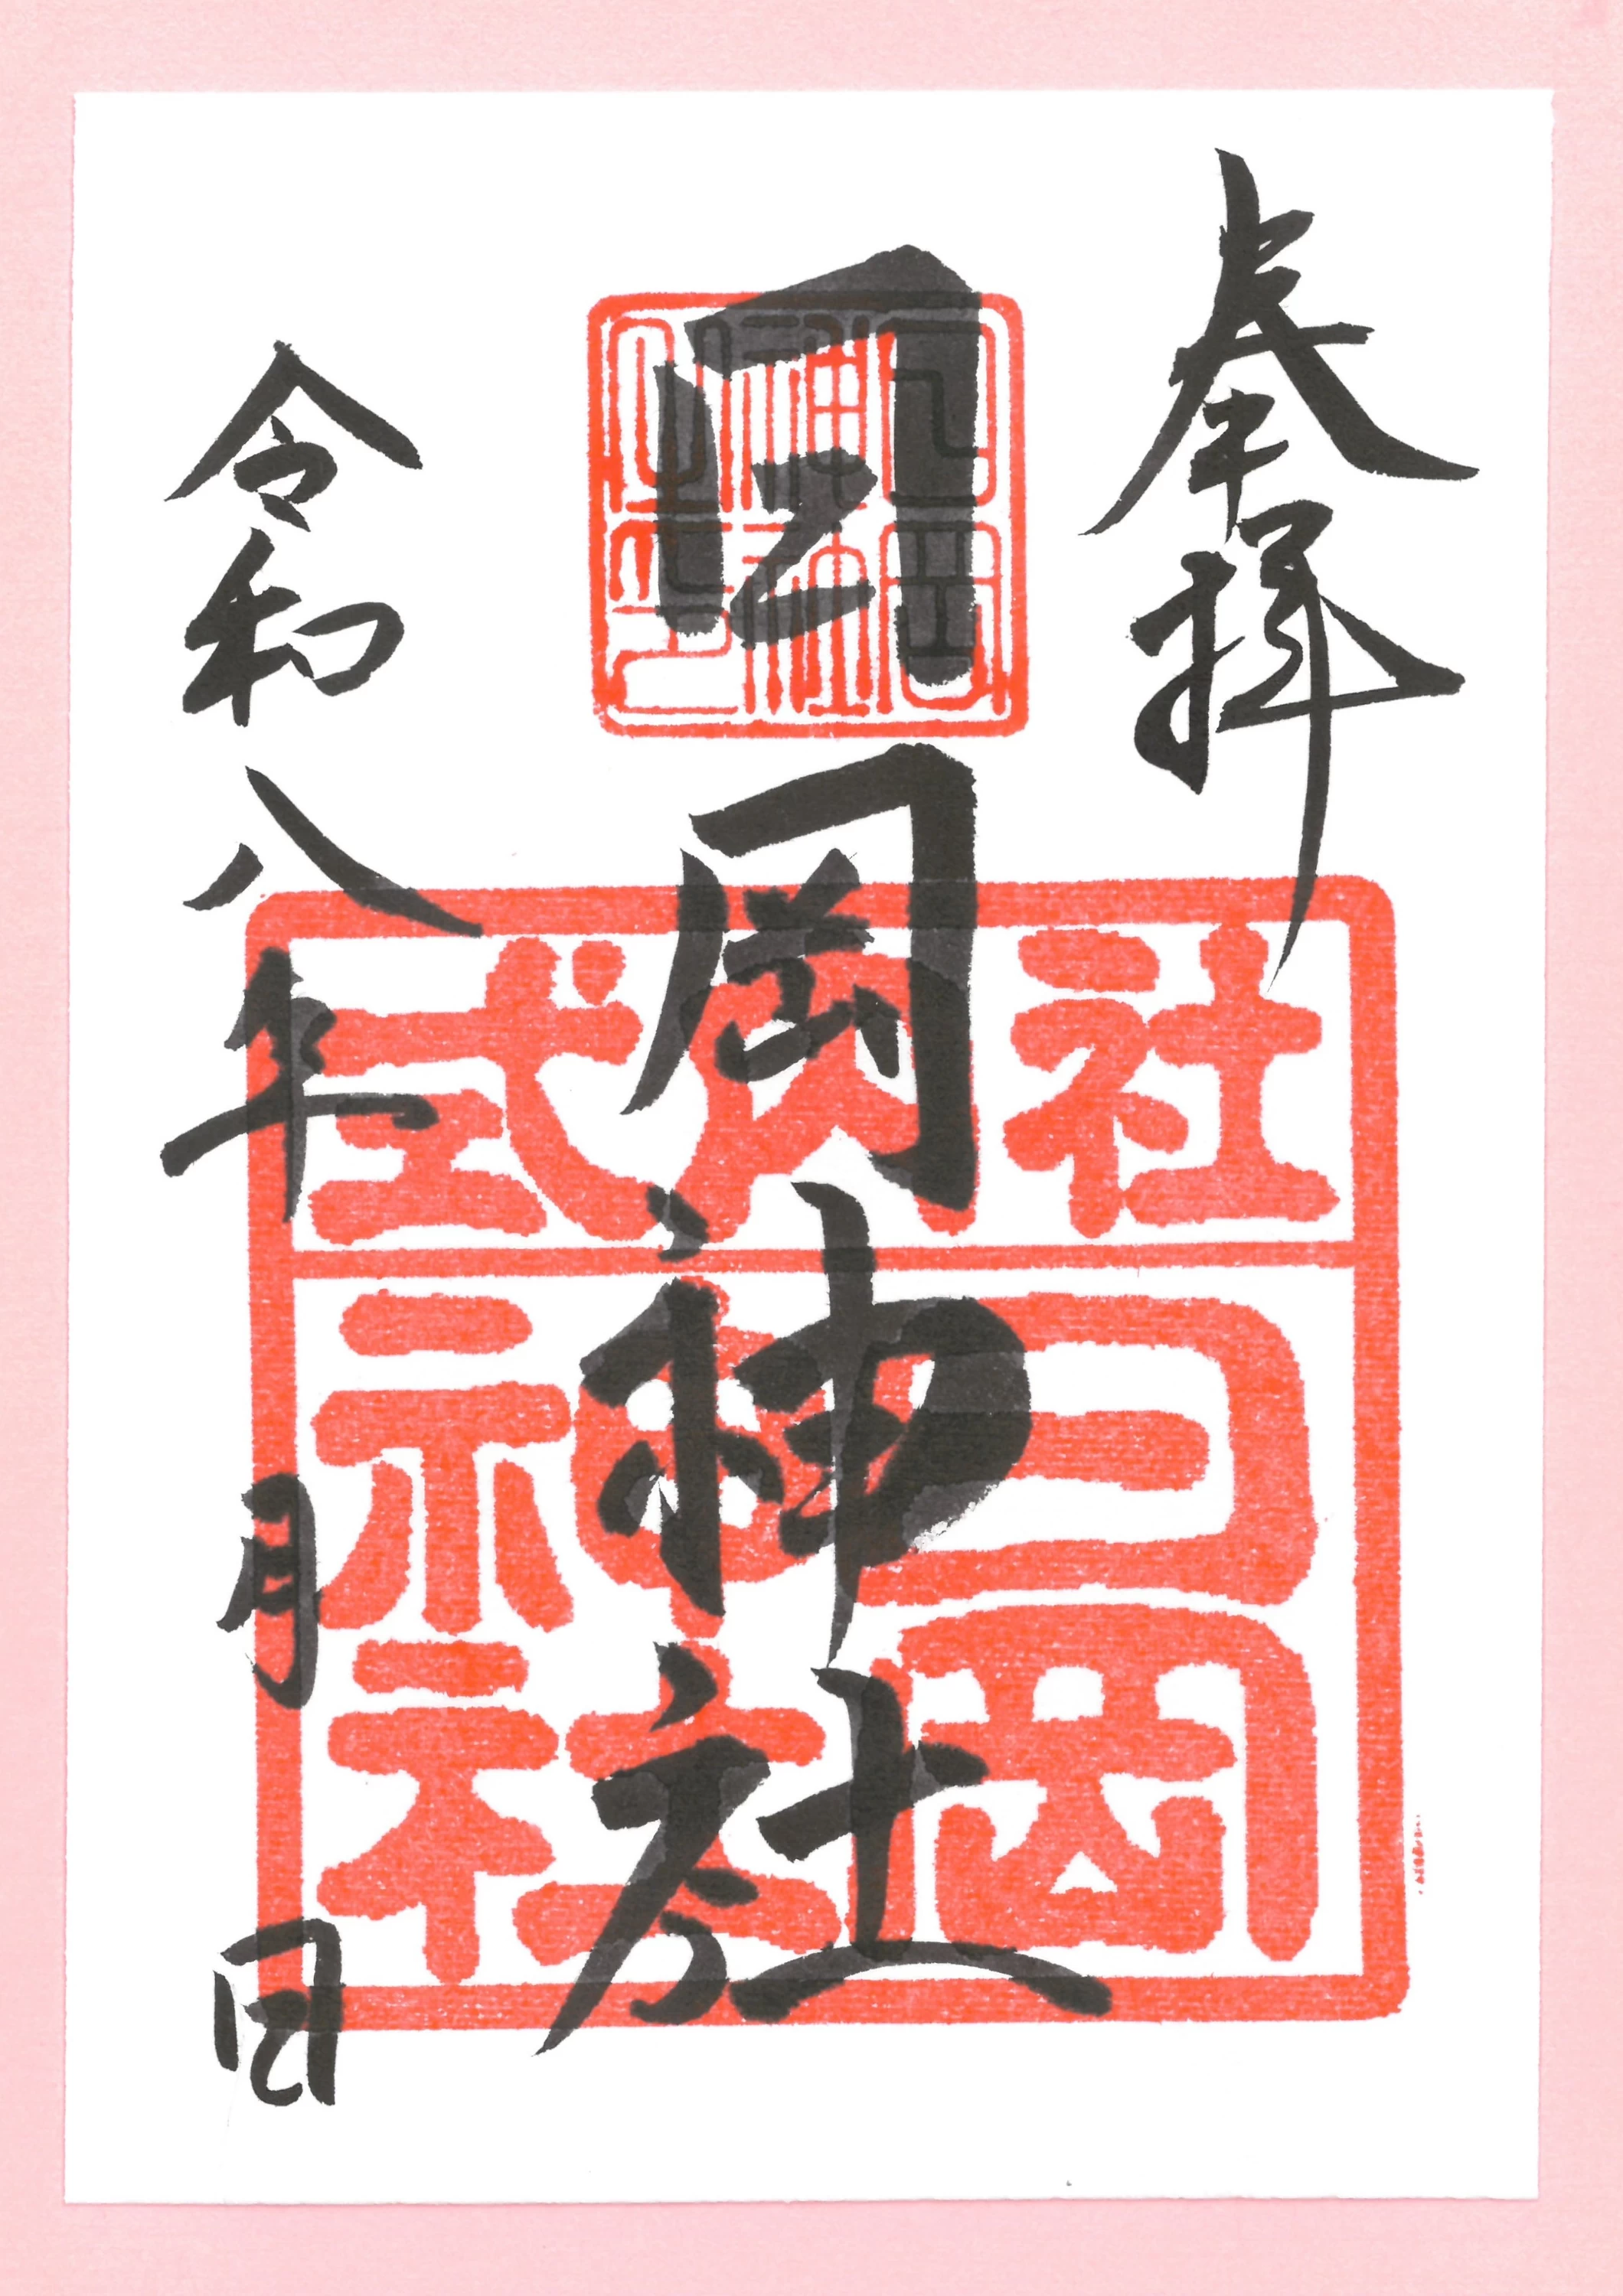 奉拝
日岡神社
令和八年 月 日
式内社
日岡
神社